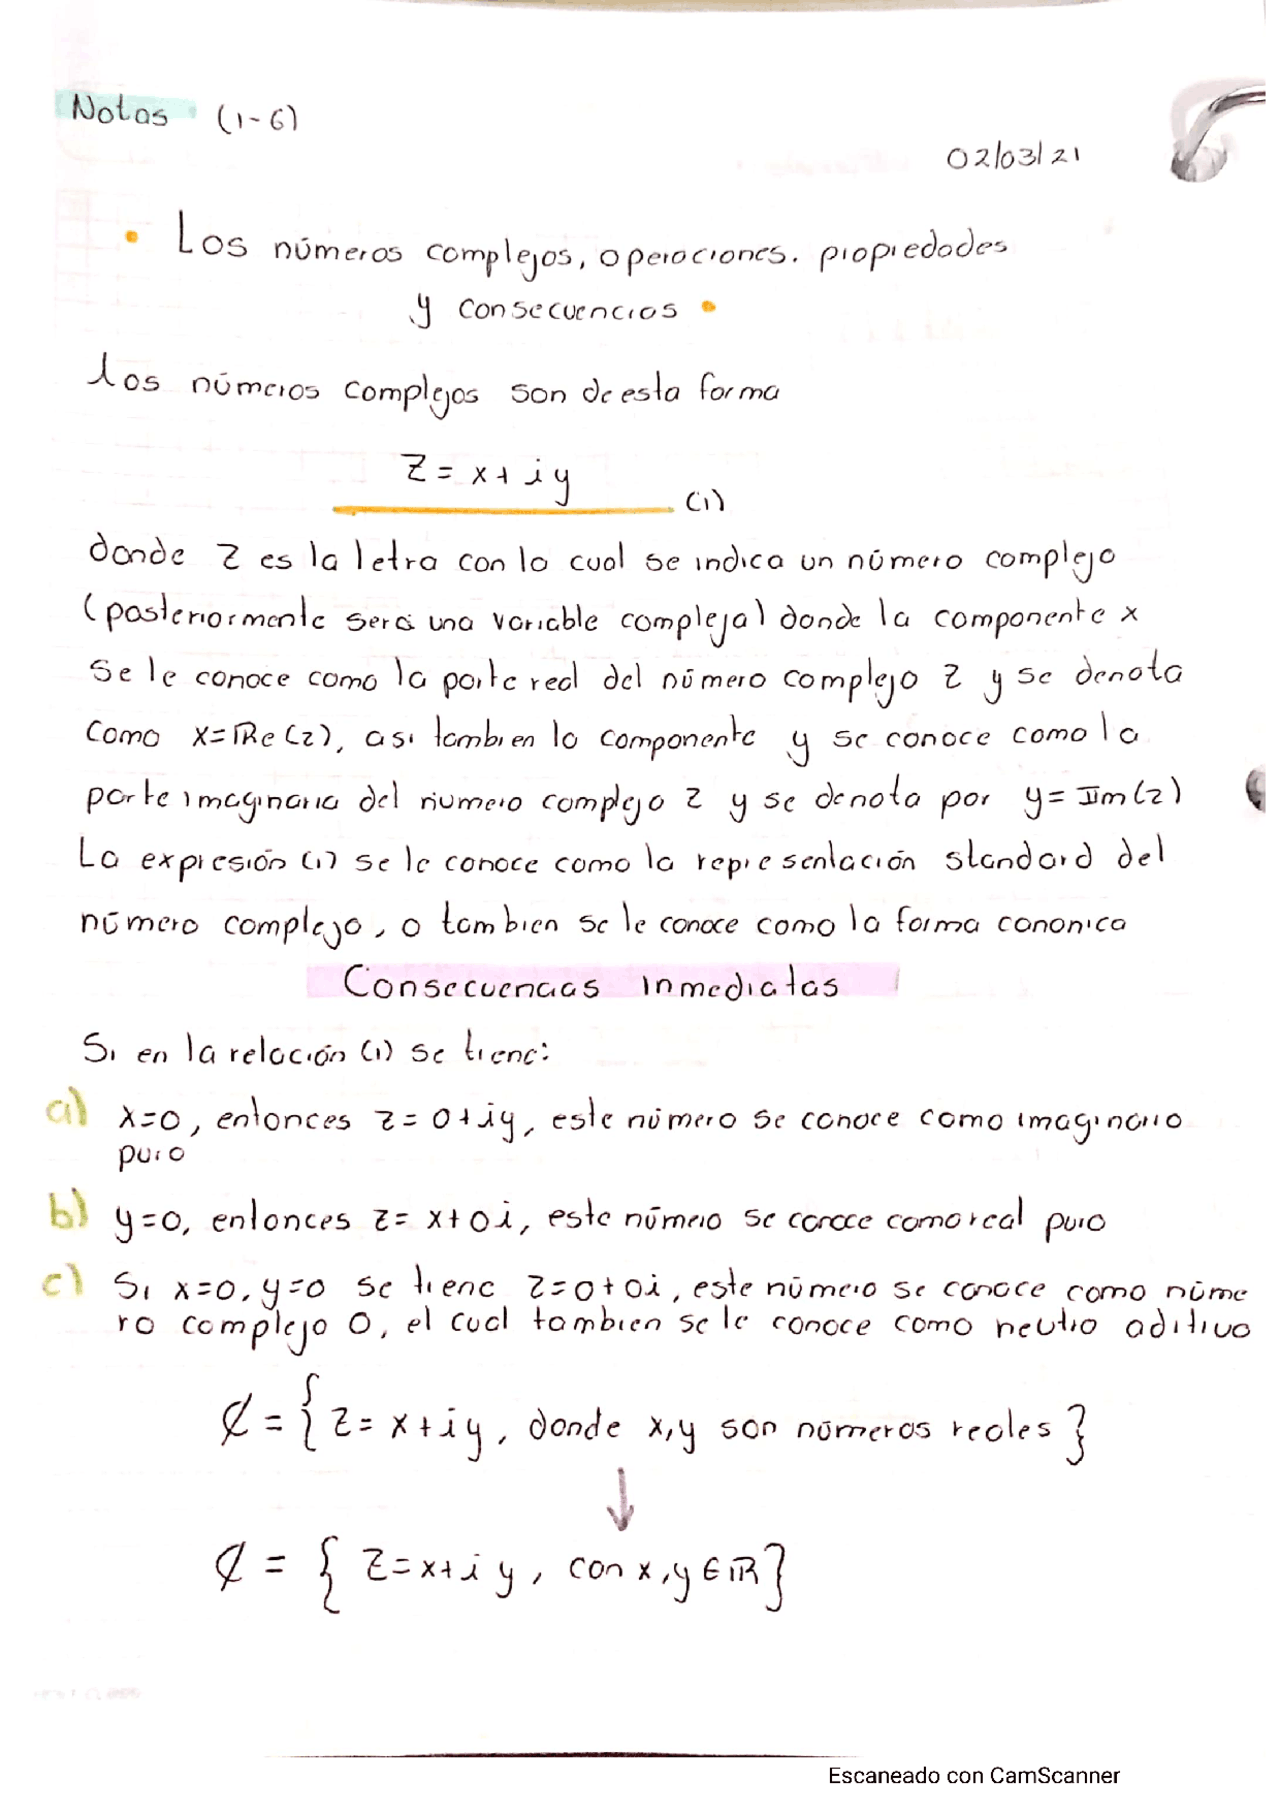 Notas (1-6)
02/03/21
• Los números complejos, operaciones. propiedades
y consecuencias •
Los números complejos son de esta forma
Z = x + i y
(1)
donde Z es la letra con la cual se indica un número complejo
(posteriormente será una variable compleja) donde la componente x
se le conoce como la parte real del número complejo Z y se denota
como x=ℝe(z), asi tambien la componente y se conoce como la
parte imaginaria del número complejo Z y se denota por y=𝕀m(z)
La expresión (1) se le conoce como la representación standard del
número complejo, o tambien se le conoce como la forma canonica
Consecuencias inmediatas
Si en la relación (1) se tiene:
a) x=0, entonces z=0+iy, este número se conoce como imaginario
puro
b) y=0, entonces z= x+0i, este número se conoce como real puro
c) Si x=0, y=0 se tiene z=0+0i, este número se conoce como núme
ro complejo 0, el cual tambien se le conoce como neutro aditivo
ℂ = { z = x + iy, donde x,y son números reales }
↓
ℂ = { z = x + i y, con x,y ∈ ℝ }
Escaneado con CamScanner